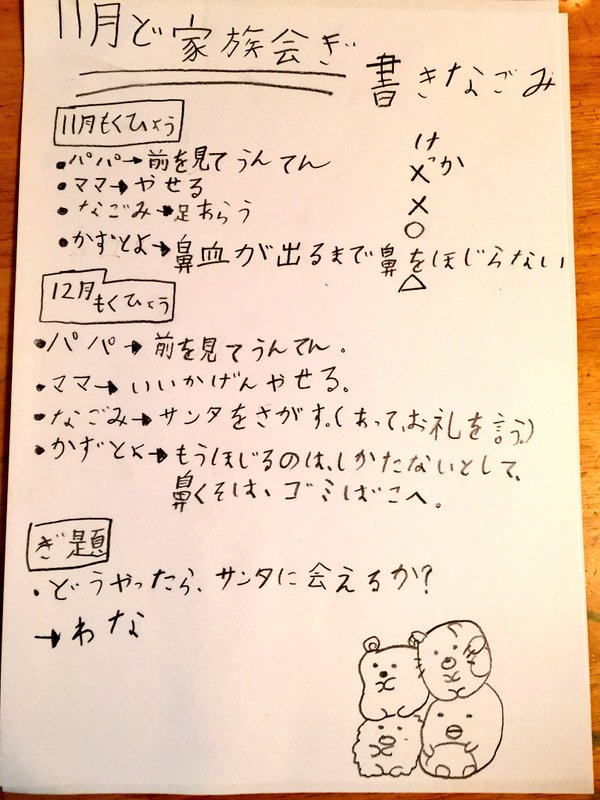 11月ど家族会ぎ
書きなごみ
11月もくひょう
けっか
・パパ→前を見てうんてん ×
・ママ→やせる ×
・なごみ→足あらう ○
・かずとよ→鼻血が出るまで鼻をほじらない △
12月もくひょう
・パパ→前を見てうんてん。
・ママ→いいかげんやせる。
・なごみ→サンタをさがす。(あって、お礼を言う。)
・かずとよ→もうほじるのは、しかたないとして、
鼻くそは、ゴミばこへ。
ぎ題
・どうやったら、サンタに会えるか?
→わな